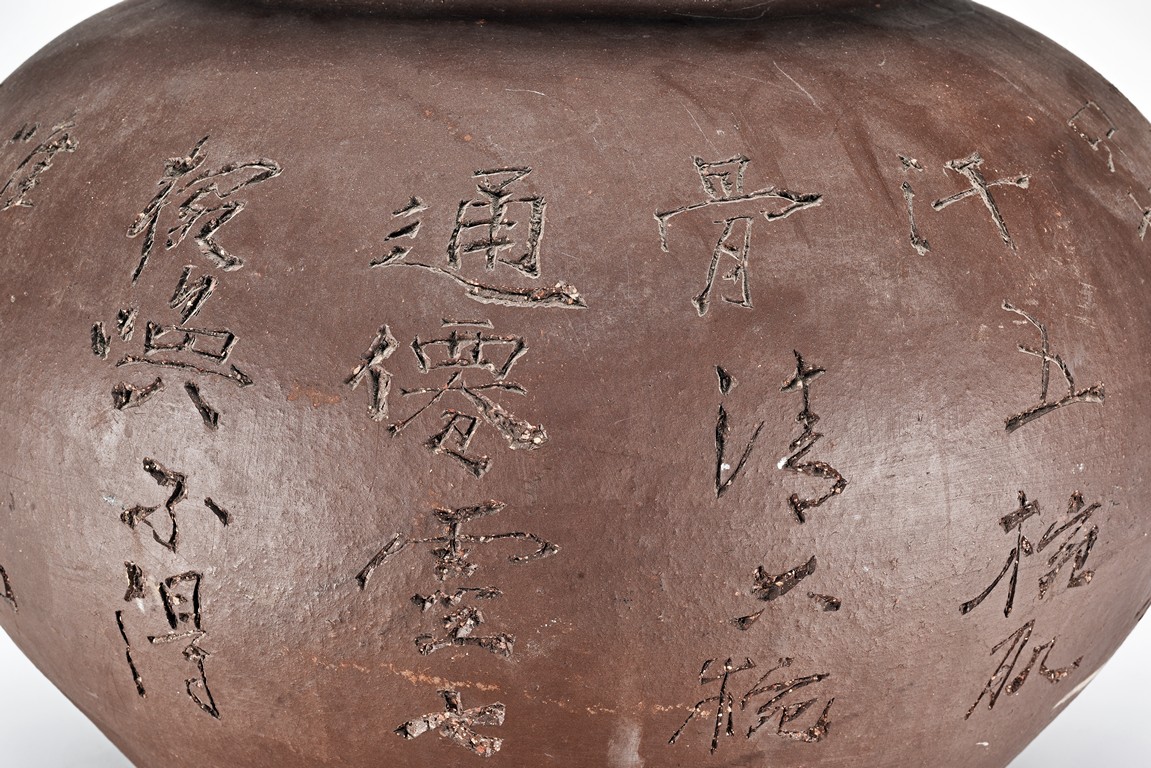 汗五椀肌
骨清六椀
通僊靈七
椀喫不得